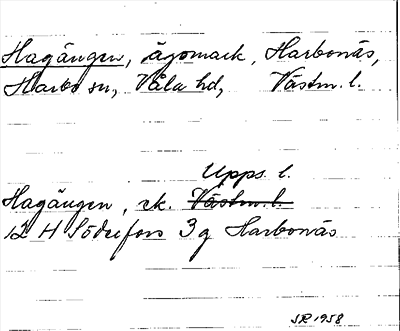 Hagängen, ägomark, Harbonäs,
Harbo sn, Våla hd, Västm. l.
Upps. l.
Hagängen, ek. Västm. l.
12 H Söderfors 3 g Harbonäs
SR 1958